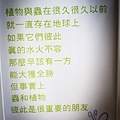 植物與蟲在很久很久以前
就一直存在地球上
如果它們彼此
真的水火不容
那麼總有一方
能大獲全勝
但事實上
蟲和植物
彼此是很重要的朋友